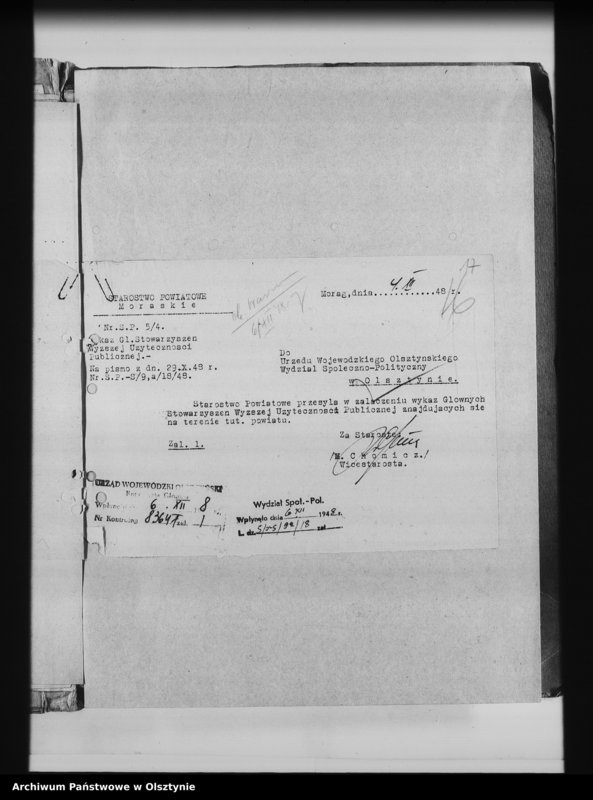 17
16
STAROSTWO POWIATOWE
M o r a s k i e
Morag,dnia............48 r.
Nr.S.P. 5/4.
Wykaz Gl.Stowarzyszen
Wyzszej Uzytecznosci
Publicznej.-
Na pismo z dn. 29.X.48 r.
Nr.S.P.-S/9,a/18/48.
Do
Urzedu Wojewodzkiego Olsztynskiego
Wydzial Spoleczno-Polityczny
w O l s z t y n i e.
Starostwo Powiatowe przesyla w zalaczeniu wykaz Glownych
Stowarzyszen Wyzszej Uzytecznosci Publicznej znajdujacych sie
na terenie tut. powiatu.
Zal. 1.
Za Staroste:
C h o m i c z./
Wicestarosta.
URZĄD WOJEWÓDZKI
6. XII 8
Nr Kontrolny zał. 1
Wydział Społ.-Pol.
Wpłynęło dnia 6 XII 1948 r.
L. dz. zał
Archiwum Państwowe w Olsztynie